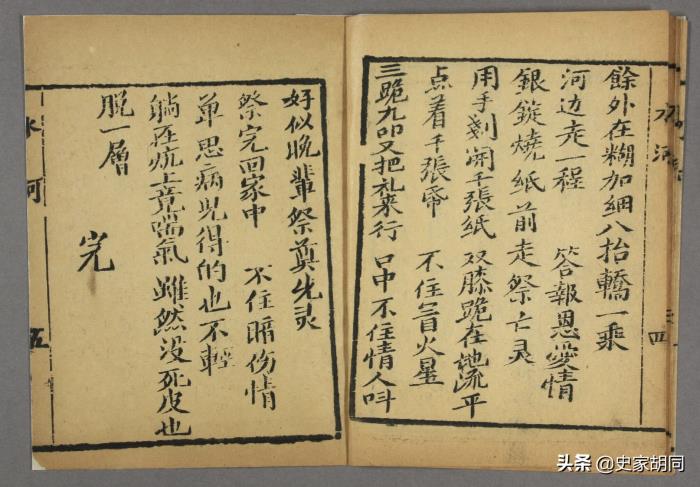 餘外在糊加綑八抬轎一乘
河边走一程 答報恩愛情
銀錠燒紙前走祭亡灵
用手剗開千張紙 双膝跪在地流平
点着千張帋 不住冒火星
三跪九叩又把礼来行 口中不住情人呌
好似晚輩祭奠先灵
祭完回家中 不住暗伤情
单思病児得的也不輕
躺在炕上竟喘氣 雖然没死皮也
脱一層
完
河
四
河
五
头条 @史家胡同